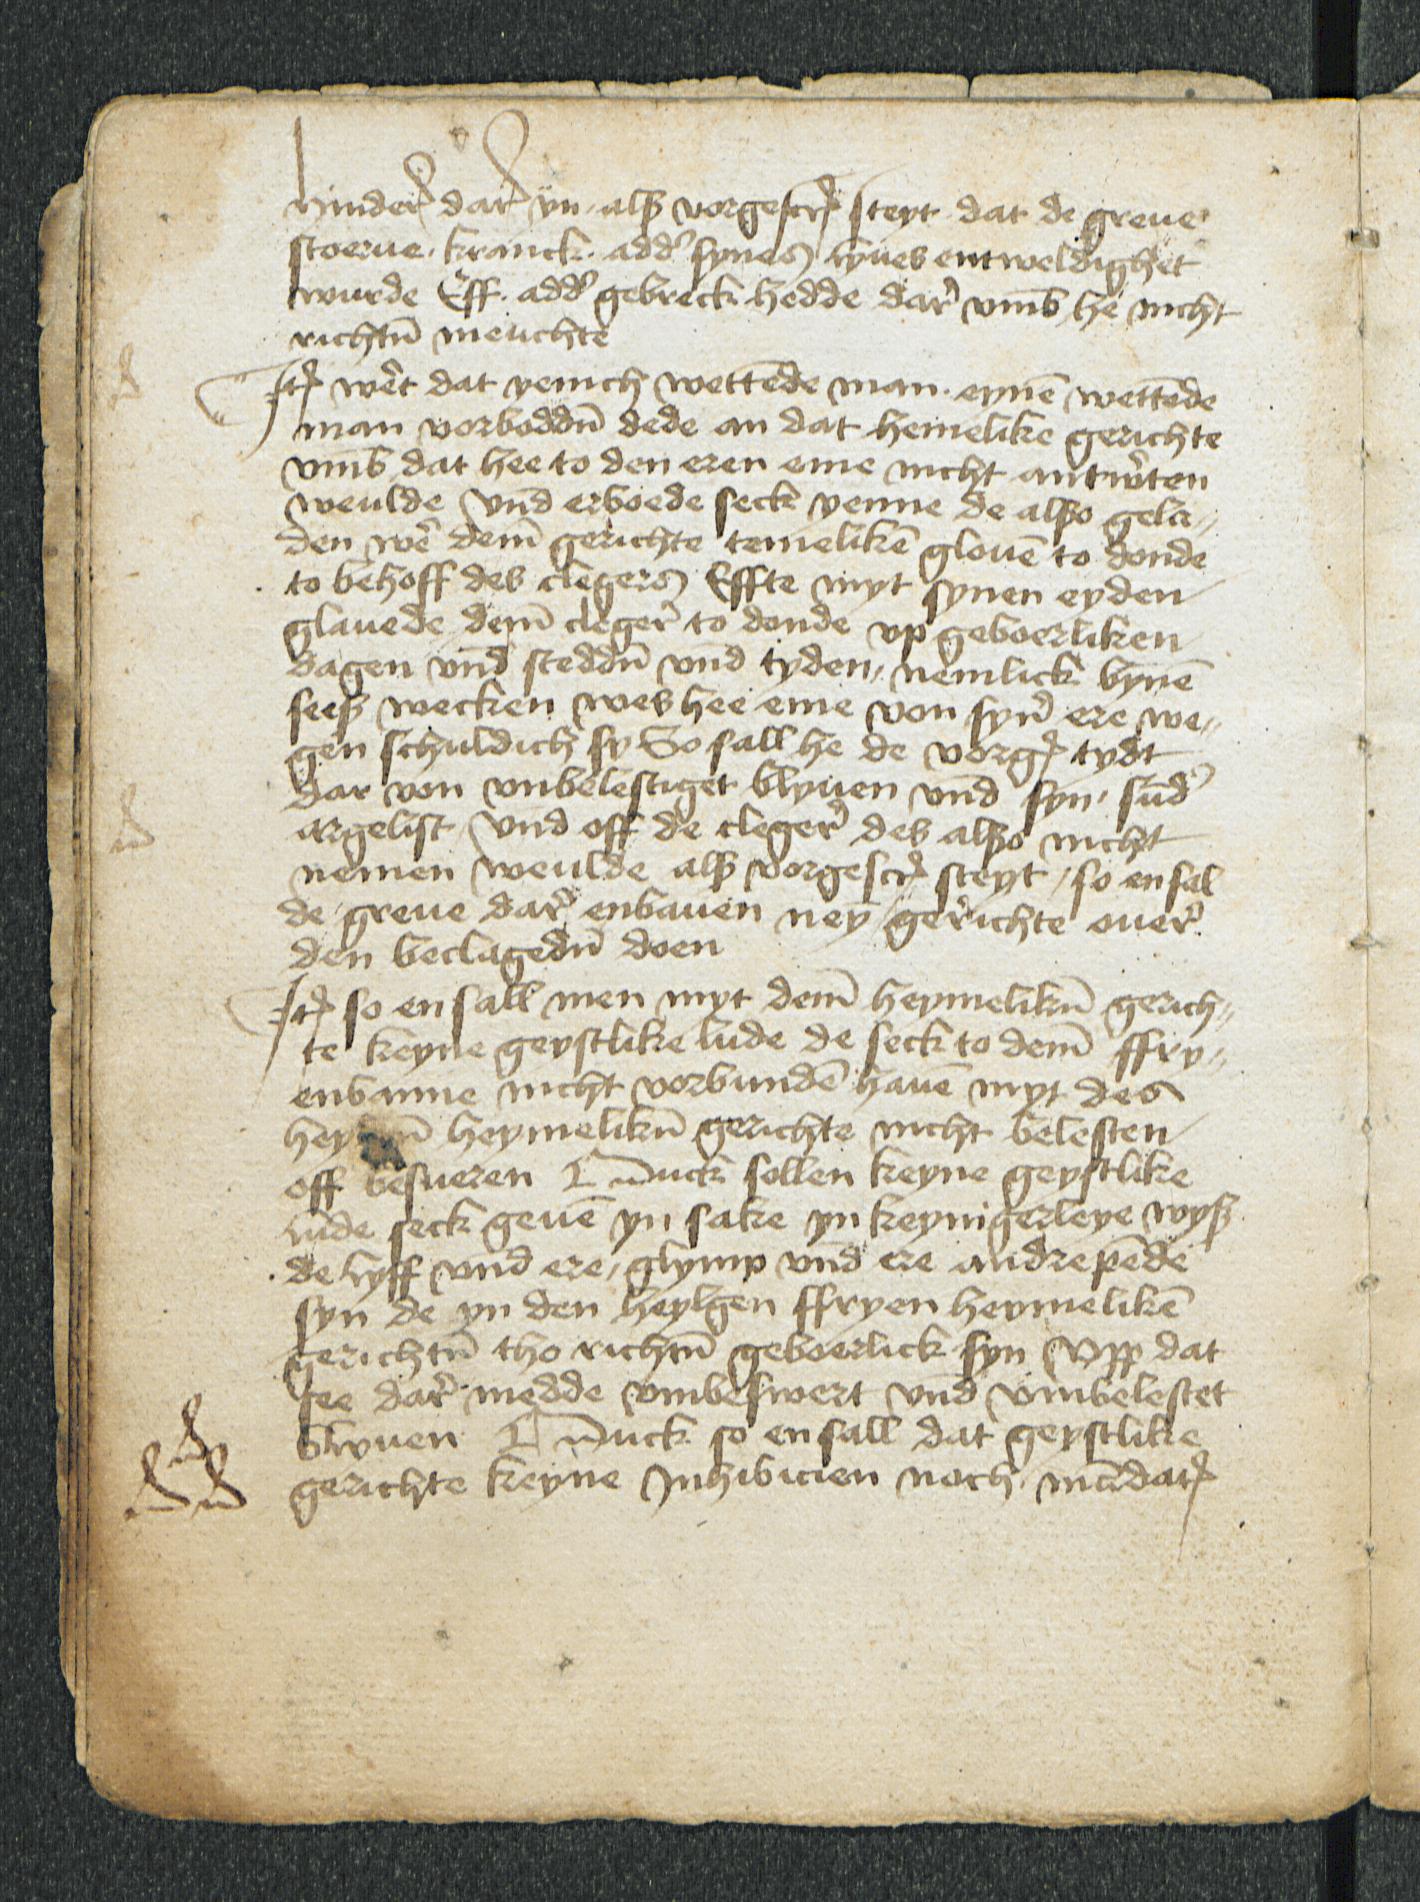 hinder dar yn alß vorgescr steyt dat de greue
stoerue kranck adder synes lyues entweldighet
wurde Eff adder gebreck hedde dar vmb he nicht
richten meuchte
It wert dat yenich wettende man eynē wettēde
man vorboddn̄ dede an dat hemelike gerichte
vmb dat hee to den eren eme nicht antwerten
weulde vnd erboede seck yenne de alßo gela„
den wer dem̄ gerichte temelikē glouē to donde
to behoff des clegers Effte myt synen eyden
glauede dem̄ cleger to donde vp geboerliken
dagen vnd steddn̄ vnd tyden, nemlick bynē
seeß wecken wes hee eme von syner ere we„
gen schuldich sy So sall he de vorg tydt
dar von vnbelestiget blyuen vnd syn, sūder
argelist vnd off de cleger des alßo nicht
nemen weulde alß vorgescr steyt, so en sal
de greue dar enbauen ney gerichte ouer
den beclagedn̄ doen
It so en sall men myt dem̄ heymelikn̄ gerich„
te keyne geystlike lude de seck to dem̄ ffry„
enbanne nicht vorbundē hauē myt des
heymelikn̄ gerichte nicht belesten
off besueren Ouck sollen keyne geystlike
lude seck geuē yn sake yn keynigerleye wyß
de lyff vnd ere, glymp vnd ere andrepēde
syn de yn den heylgen ffryen heymelikē
gerichtn̄ tho richtn̄ geboerlick syn vpp dat
see dar medde vmbeswert vnd vmbelestet
blyuen Ouck so en sall dat geystlike
gerichte keyne Inhibicien noch mādat